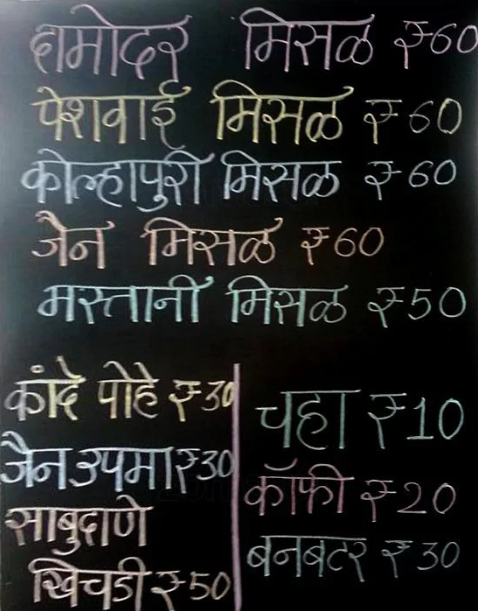 दामोदर मिसळ ₹60
पेशवाई मिसळ ₹60
कोल्हापुरी मिसळ ₹60
जैन मिसळ ₹60
मस्तानी मिसळ ₹50
कांदे पोहे ₹30
जैन उपमा ₹30
साबुदाणे
खिचडी ₹50
चहा ₹10
कॉफी ₹20
बनबटर ₹30